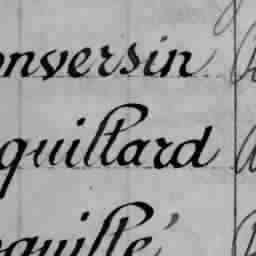 onversin
quillard
quillé